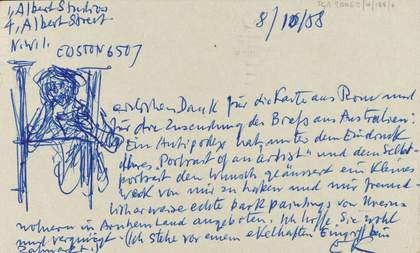 1, Albert Studios
4, Albert Street
N.W.1.
EUSTON 6507
8/10/58
erzlichen Dank für die Karte aus Rom und
für die Zusendung des Briefs aus Australien:
Ein Antipode hat unter dem Eindruck
"Portrait of an Artist" und dem Selbst-
portrait den Wunsch geäussert ein kleines
Werk von mir zu haben und mir freund
licherweise echte bark paintings von Urein
wohnern in Arnhem Land angeboten. Ich hoffe, Sie wohl
und vergnügt. (Ich stehe vor einem ekelhaften Eingriff beim
Zahnarzt.)